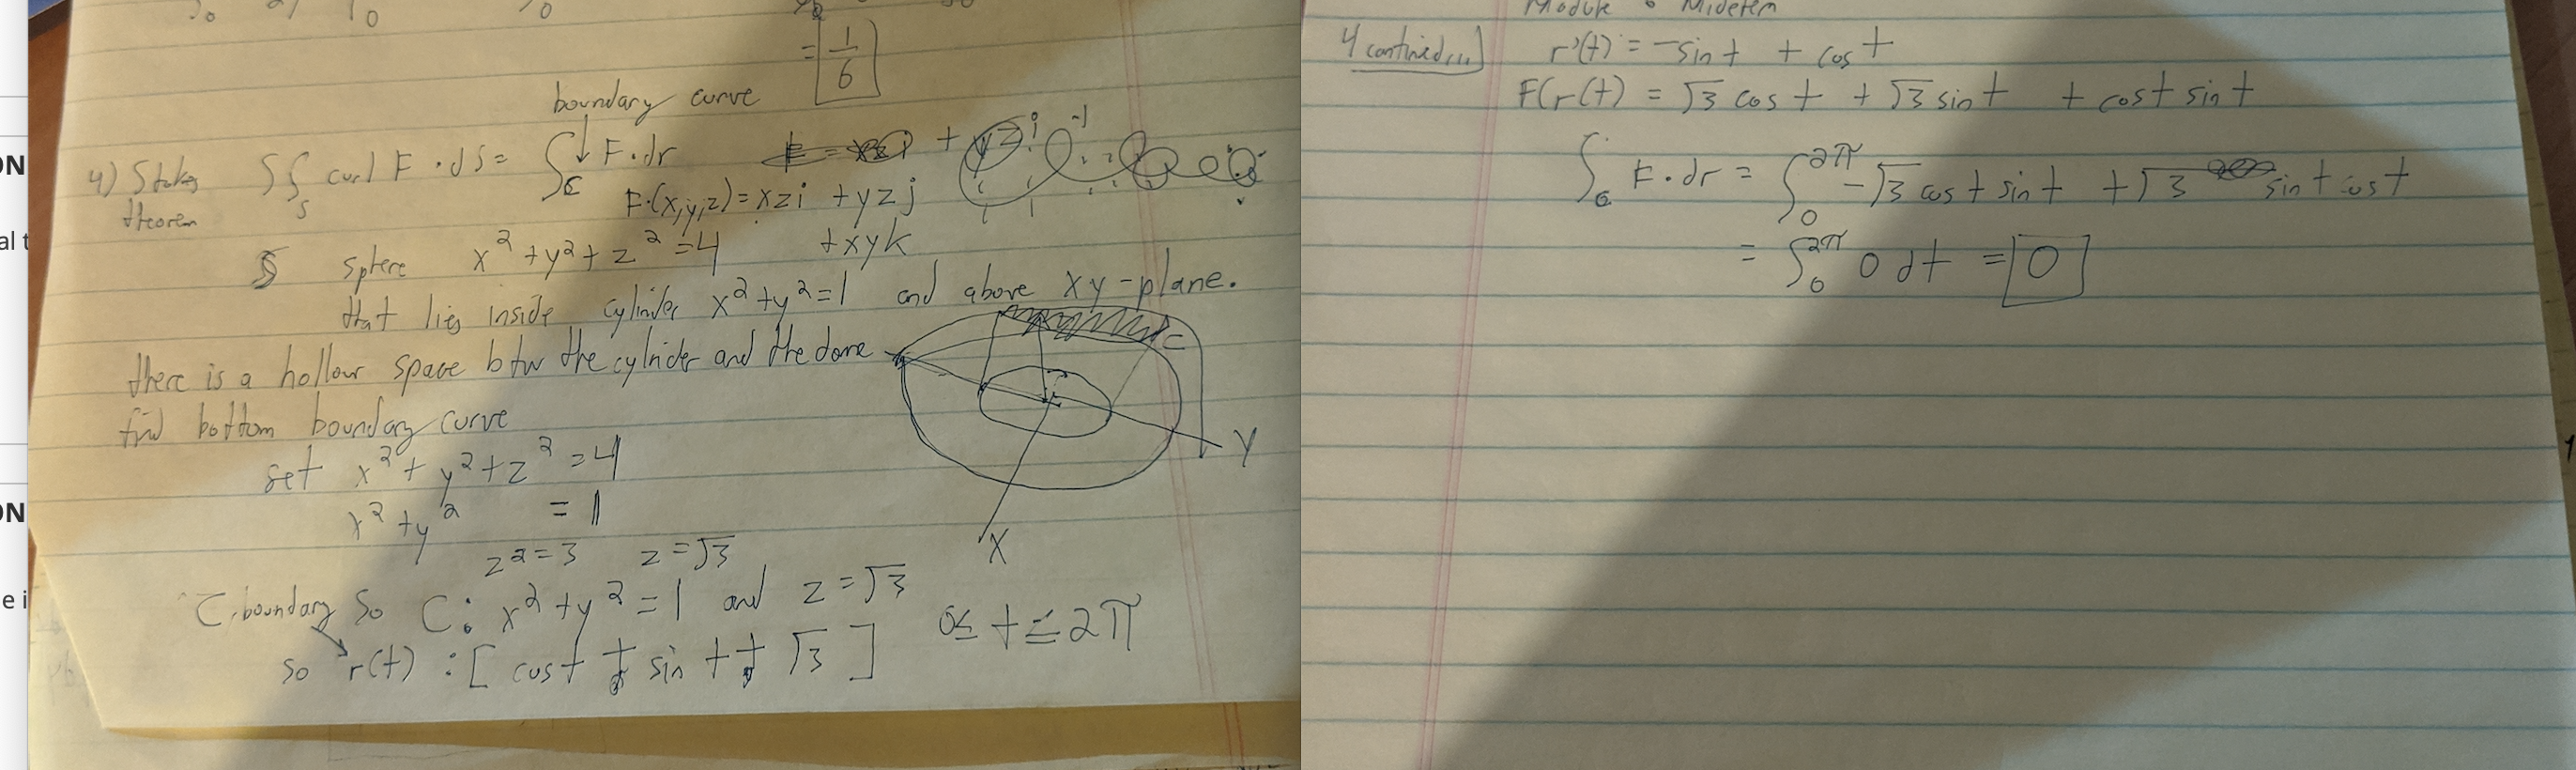 = 1/6
boundary curve
4) Stokes theorem ∫∫_S curl F · dS = ∫_C F·dr
F(x,y,z) = xzi + yzj + xyk
S sphere x² + y² + z² = 4
that lies inside cylinder x² + y² = 1 and above xy-plane.
there is a hollow space btw the cylinder and the dome
find bottom boundary curve
set x² + y² + z² = 4
x² + y² = 1
z² = 3 z = √3
C boundary So C: x² + y² = 1 and z = √3
so r(t) : [cost + sin t + √3] 0 ≤ t ≤ 2π
C
Y
X
Module 8 Mideterm
4 continued...] r'(t) = -sint + cos t
F(r(t) = √3 cos t + √3 sin t + cost sin t
∫_C F·dr = ∫_0^2π -√3 cos t sin t + √3 sin t cos t
= ∫_0^2π 0 dt = 0
ON
al t
ON
e i
1